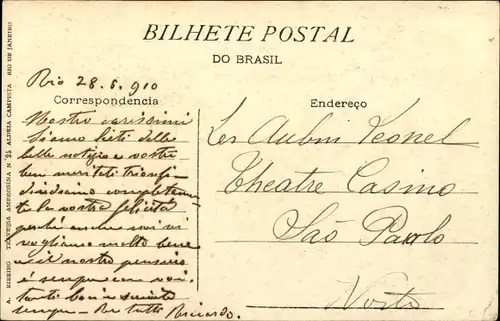 BILHETE POSTAL
DO BRASIL
Rio 28.8.910
Correspondencia
Nostri carissimi
Siamo lieti delle
belle notizie e vostri
ben meritati trionfi
dividiamo completamen-
te la vostra felicità
perchè anche noi vi
vogliamo molto bene
e il nostro pensiero
è sempre con voi.
tanti baci
sempre - Da tutti Riccardo.
Endereço
Les Aubin Leonel
Theatre Casino
São Paolo
A. RIBEIRO TRAVESSA AMBROSINA N 25 ALDEIA CAMPISTA RIO DE JANEIRO